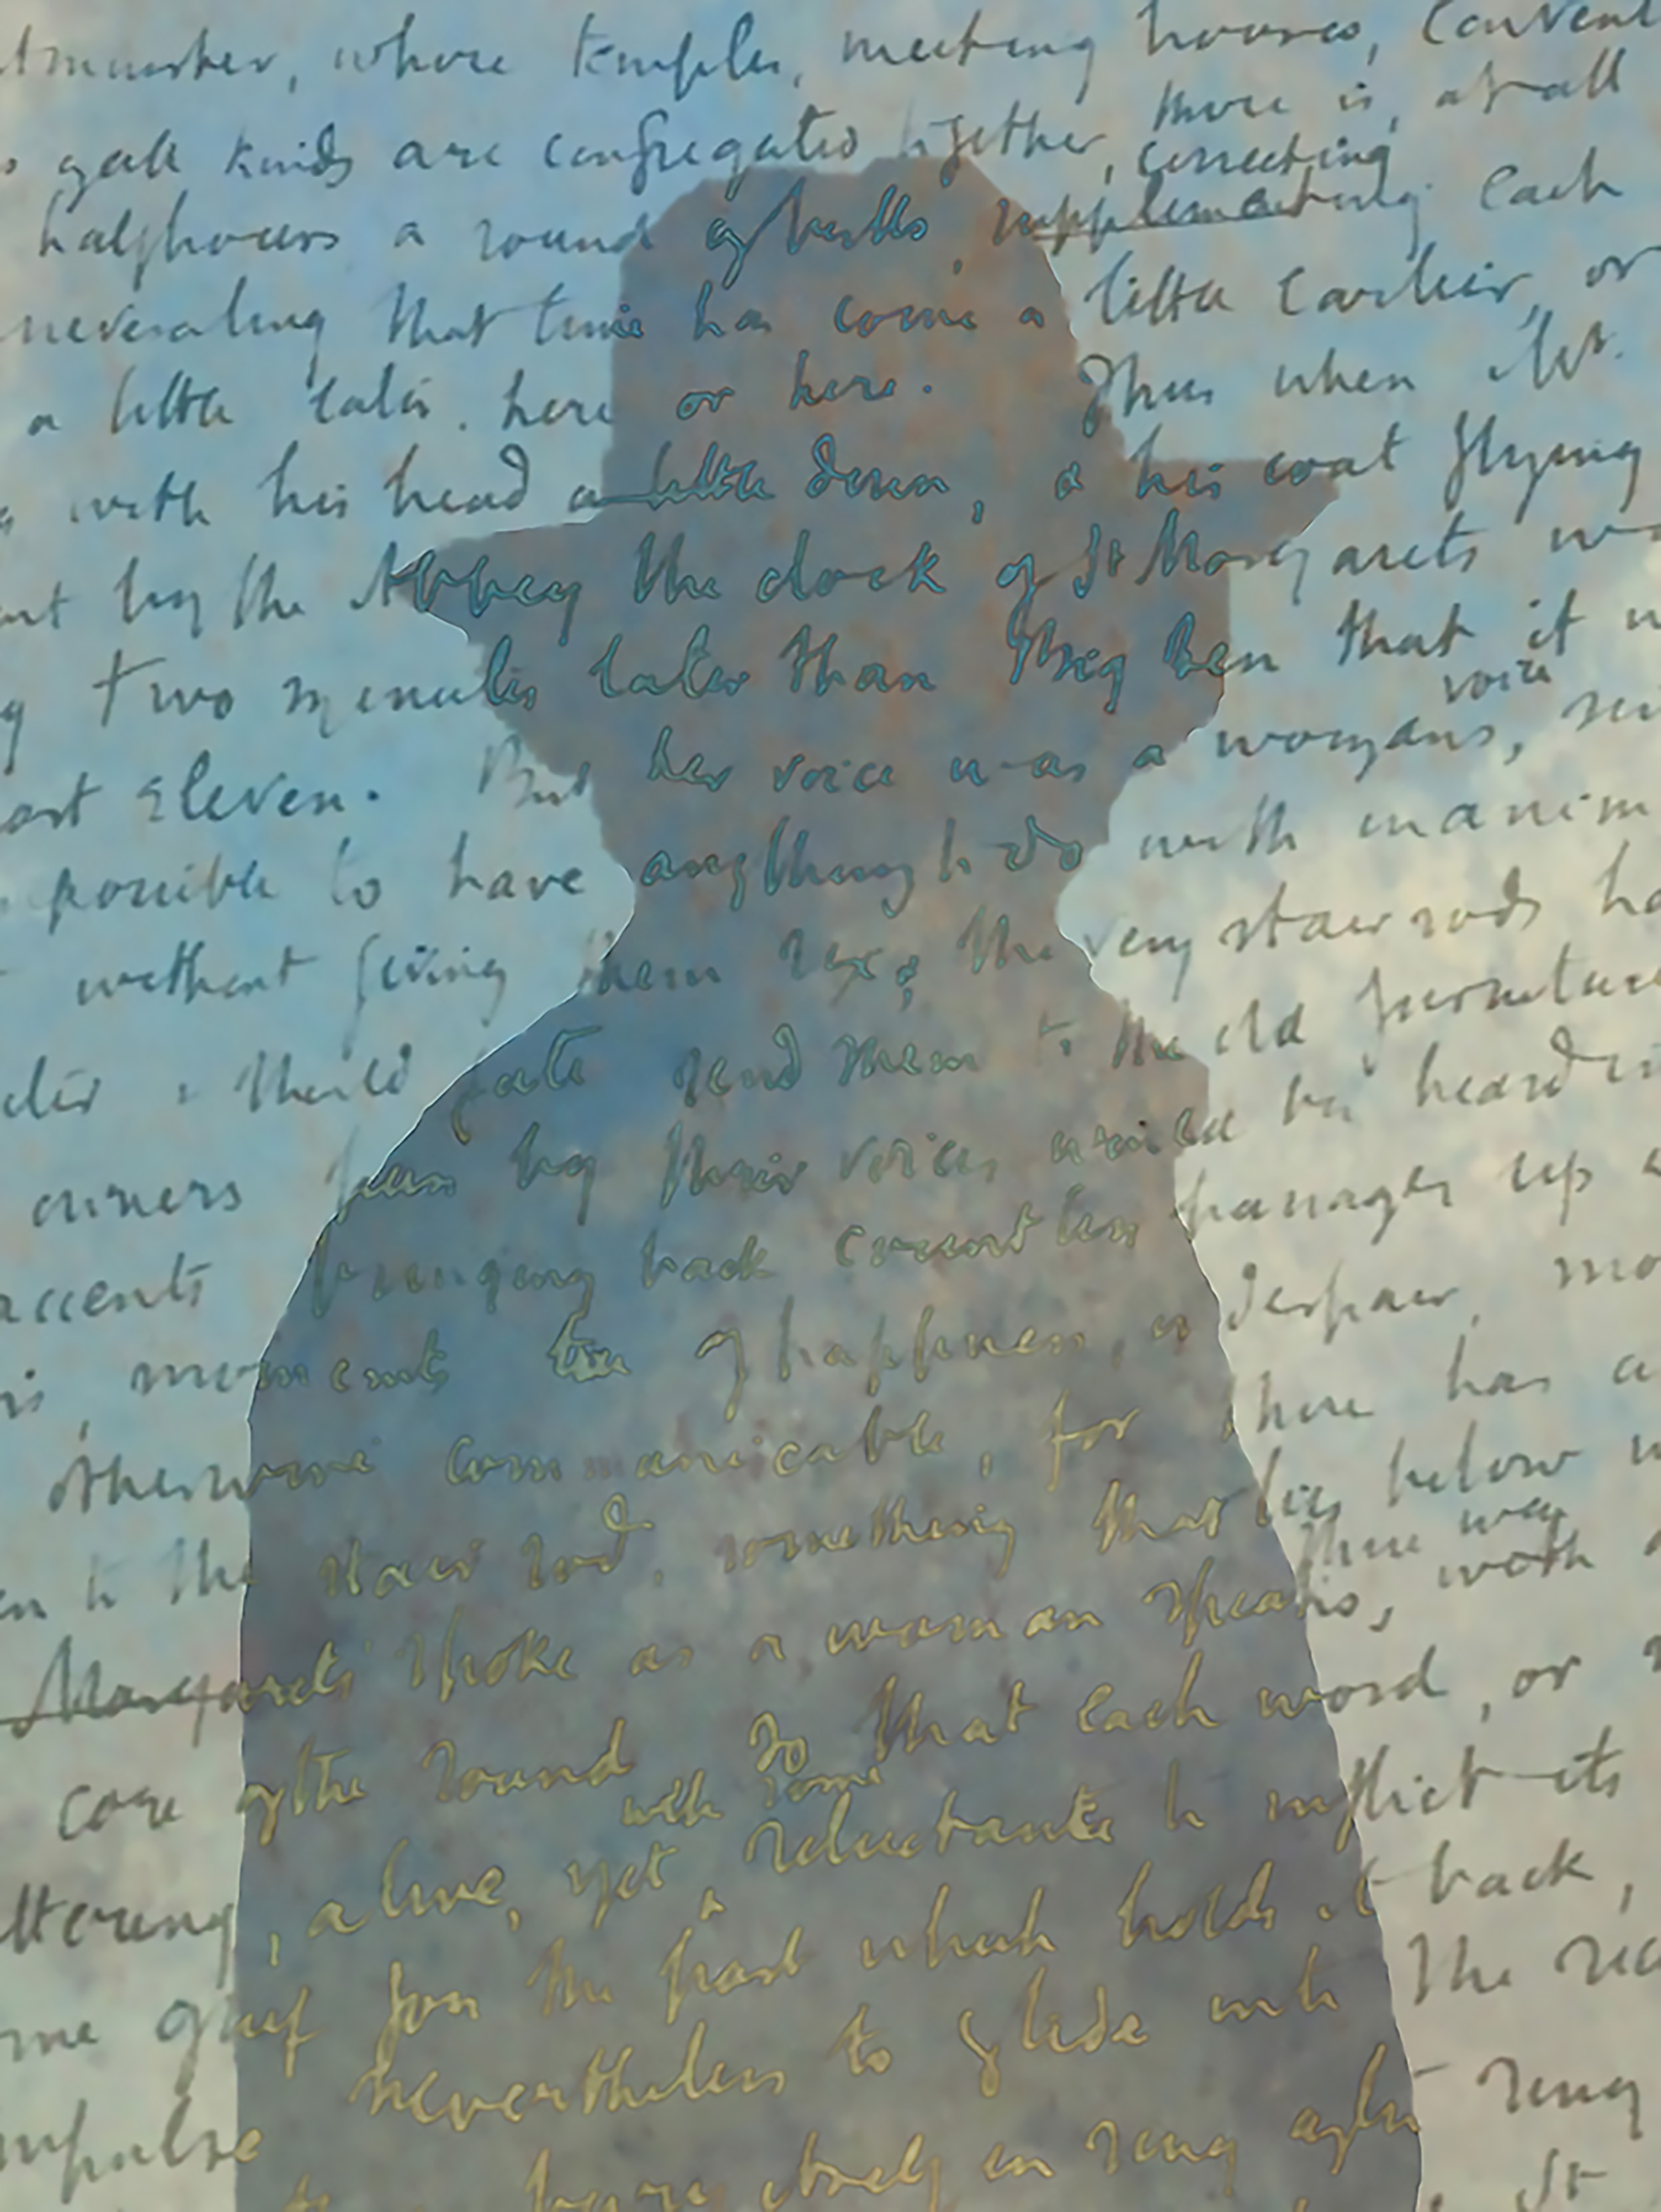 whose temples, meeting houses, convent
kinds are congregated together, there is, at all
correcting
halfhours a round of bells, supplementing each
that time has come a little earlier, or
a little later, here or here. Thus when Mr.
with his head a little down, & his coat flying
by the Abbey the clock of St Margarets
two minutes later than Big Ben that it
voice
eleven. But her voice was a womans,
possible to have anything to do with inanim
without giving them sex; the very stair rods ha
should fate send them to the old furniture
owners by their voices would be heard
accents bringing back countless passages up
moments of happiness, or despair, mo
otherwise communicable, for there has
to the stair rod, something that lies below
there was
Margarets spoke as a woman speaks, with
core of the sound So that each word, or
with some
alive, yet reluctante to inflict its
grief for the past which holds it back,
impulse nevertheless to glide into the
in ring after ring
St